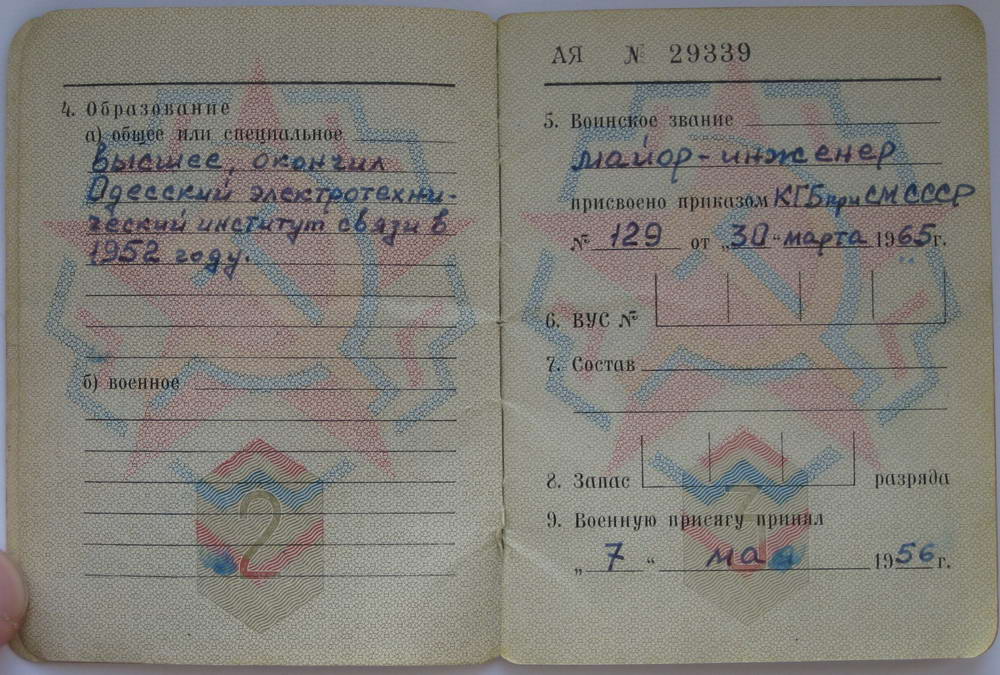 4. Образование
а) общее или специальное
Высшее, окончил
Одесский электротехни-
ческий институт связи в
1952 году.
б) военное
2
АЯ № 29339
5. Воинское звание
майор-инженер
присвоено приказом КГБ при СМ СССР
№ 129 от „30“ марта 1965г.
6. ВУС №
7. Состав
8. Запас разряда
9. Военную присягу принял
„ 7 “ мая 1956 г.